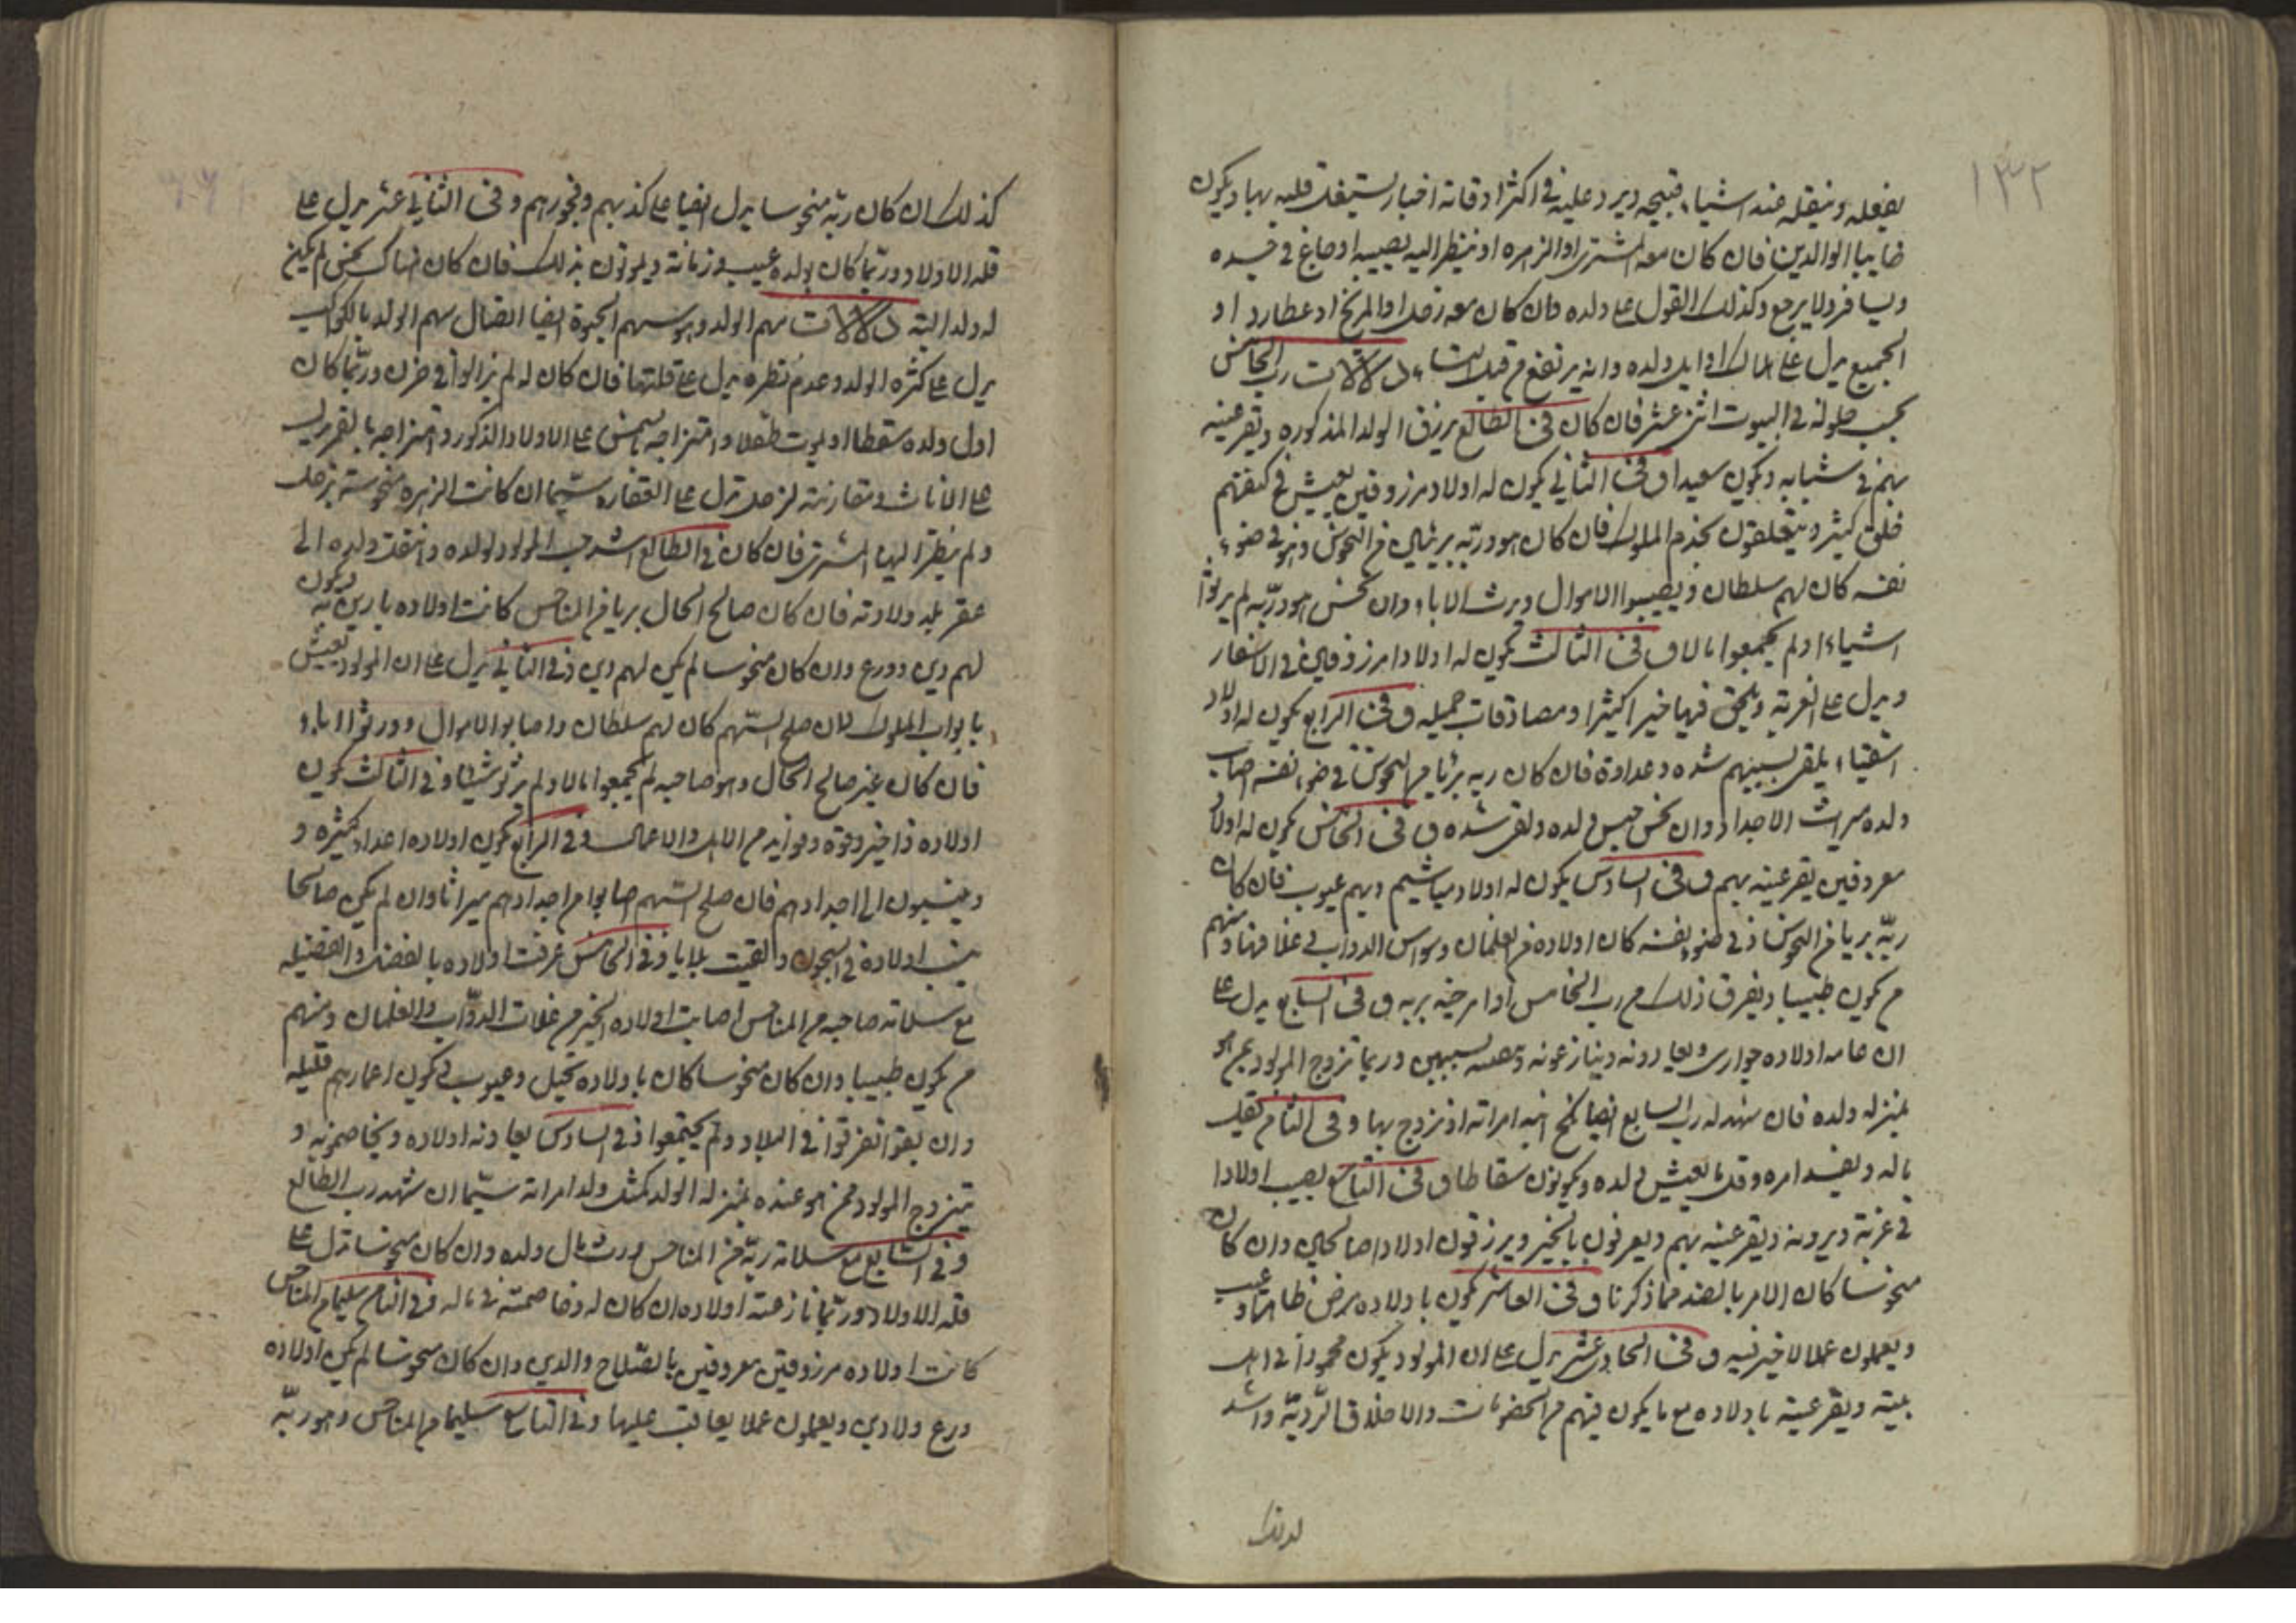 ١٣٢
يفعله وينقله عند اشياء قبيحه ويرد عليه في اكثر اوقاته اخبار يشتغل قلبه بها ويكون
الوالدين فان كان معه المشتري او الزهره او ينظر اليه يصيبه اوجاع في جسده
ويسافر ولا يرجع وكذلك القول على ولده وان كان معه زحل او المريخ او عطارد او
الجميع يدل على ولده وانه يرتفع من قبل دلالات رب الخامس
بحسب حلوله في البيوت اثني عشر فان كان في الطالع يرزق الولد المذكوره وتقر عينه
بهم في شبابه ويكون سعيدا وفي الثاني يكون له اولاد مرزوقين يعيش في كنفهم
خلق كثير ويتعلقون بخدم الملوك فان كان هو وربه بريئان من النحوس وهو في ضوء
نفسه كان لهم سلطان ويصيبوا الاموال ويرث الاباء وان نحس هو وربه لم يرثوا
اشياء ولم يجمعوا مالا وفي الثالث يكون له اولادا مرزوقين في الاسفار
ويدل على الغربة ويلحق فيها خيرا كثيرا ومصادقات جميله وفي الرابع يكون له اولاد
اشقياء يلقى بسببهم شده وعداوة فان كان ربه بريا من النحوس في ضوء نفسه اصاب
ولده ميراث الاجداد وان نحس حبس ولده ولقى شده وفي الخامس يكون له اولاد
معروفين تقر عينه بهم وفي السادس يكون له اولاد مياشيم وبهم عيوب فان كان
ربه بريا من النحوس في ضوء نفسه كان اولاده من الغلمان وسواس الدواب ومنهم
من يكون طبيبا ويفرق ذلك من رب الخامس وفي السابع يدل على
ان عامه اولاده جوارى ويعادونه وينازعونه بسببهن وربما تزوج المولود بمن هو
بمنزله ولده فان شهد له رب السابع ايضا نكح ابنه امراته او تزوج بها وفي الثامن يقل
ماله ويفسد امره وقل ما يعيش ولده ويكونون سقاطا وفي التاسع يصيب اولادا
في غربة ويرونه وتقر عينه بهم ويعرفون بالخير ويرزقون اولادا صالحين وان كان
منحوسا كان الامر بالضد مما ذكرنا وفي العاشر يكون باولاده مرض ظاهر او عيب
ويعملون عملا لا خير فيه وفي الحادي عشر يدل على ان المولود يكون محمودا في اهل
بيته وتقر عينه باولاده مع ما يكون فيهم من والاخلاق الرديه واشد
كذلك ان كان ربه منحوسا يدل ايضا على كذبهم وفجورهم وفي الثاني عشر يدل على
قله الاولاد وربما كان بولده عيب وزمانة ويموتون بذلك فان كان هناك نحس لم يكن
له ولد البته دلالات سهم الولد وهو سهم الحيوة ايضا اتصال سهم الولد بالكواكب
يدل على كثره الولد وعدم نظره يدل على قلتها فان كان له لم يزالوا في حزن وربما كان
اول ولده سقطا او يموت طفلا وامتزاجه بالشمس على الاولاد الذكور وامتزاجه بالقمر يدل
على الاناث ومقارنة لزحل تدل على العقاره سيما ان كانت الزهره منحوسة بزحل
ولم ينظر اليها المشتري فان كان في الطالع اشد حب المولود لولده وانتقل ولده الى
غير بلد ولادته فان كان صالح الحال بريا من المناحس كانت اولاده بارين به ويكون
لهم دين وورع وان كان منحوسا لم يكن لهم دين وفي الثاني يدل على ان المولود يعيش
بابواب الملوك فان صلح السهم كان لهم سلطان واصابوا الاموال وورثوا الاباء
فان كان غير صالح الحال وهو صاحبه لم يجمعوا مالا ولم يرثو شيئا وفي الثالث يكون
اولاده ذا خير وقوة وفوايد من الاهل والاعمال وفي الرابع يكون اولاده اعداء كثيره و
وينسبون الى اجدادهم فان صلح السهم اصابوا من اجدادهم ميراثا وان لم يكن صالحا
اولاده في السجون والقيت بلايا وفي الخامس عرفت اولاده بالفضل والفضيله
مع سلامة صاحبه من المناحس اصابت اولاده الخير من غلات الدواب والغلمان ومنهم
من يكون طبيبا وان كان منحوسا كان باولاده وعيوب ويكون اعمارهم قليله
وان بقوا تفرقوا في البلاد ولم يجتمعوا وفي السادس يعادونه اولاده ويخاصمونه و
يتزوج المولود بمن هو عنده بمنزله الولد كمثل ولد امراته سيما ان شهد رب الطالع
وفي السابع مع سلامة ربه من المناحس ورث مال ولده وان كان منحوسا تدل على
قله الاولاد وربما نازعته اولاده ان كان له وخاصمته في ماله وفي الثامن سليما من المناحس
كانت اولاده مرزوقين معروفين بالصلاح والدين وان كان منحوسا لم يكن اولاده
ورع ولا دين ويعملون عملا يعاقب عليها وفي التاسع سليما من المناحس وهو ربه